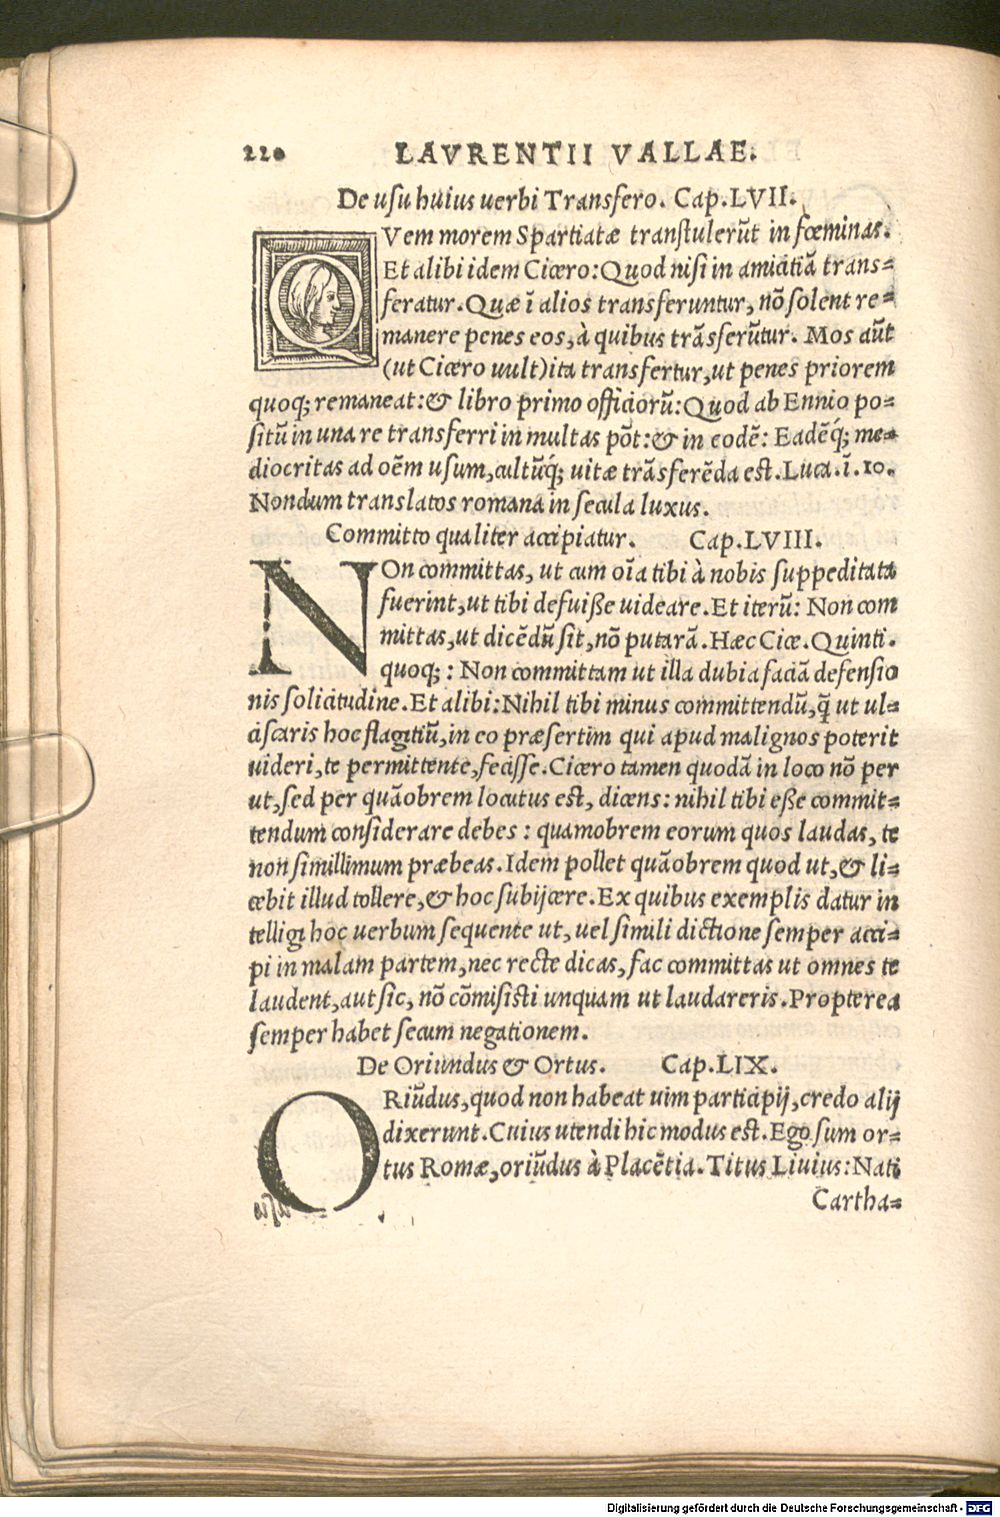 220 LAVRENTII VALLAE.
De usu huius uerbi Transfero. Cap. LVII.
QVem morem Spartiatæ transtulerũt in fœminas.
Et alibi idem Cicero: Quod nisi in amicitiã trans=
feratur. Quæ ĩ alios transferuntur, nõ solent re=
manere penes eos, à quibus trãsferũtur. Mos aũt
(ut Cicero uult) ita transfertur, ut penes priorem
quoq; remaneat: & libro primo officiorũ: Quod ab Ennio po=
sitũ in una re transferri in multas põt: & in eodẽ: Eadẽq́; me=
diocritas ad oẽm usum, cultũq́; uitæ trãsferẽda est. Luca. ĩ. 10.
Nondum translatos romana in secula luxus.
Committo qualiter accipiatur. Cap. LVIII.
NOn committas, ut cum oĩa tibi à nobis suppeditata
fuerint, ut tibi defuiße uideare. Et iterũ: Non com
mittas, ut dicẽdũ sit, nõ putarã. Hæc Cice. Quinti.
quoq; : Non committam ut illa dubia faciã defensio
nis solicitudine. Et alibi: Nihil tibi minus committendũ, q̃ ut ul=
ciscaris hoc flagitiũ, in eo præsertim qui apud malignos poterit
uideri, te permittente, fecisse. Cicero tamen quodã in loco nõ per
ut, sed per quãobrem locutus est, dicens: nihil tibi eße commit=
tendum considerare debes : quamobrem eorum quos laudas, te
non simillimum præbeas. Idem pollet quãobrem quod ut, & li=
cebit illud tollere, & hoc subijcere. Ex quibus exemplis datur in
telligi hoc uerbum sequente ut, uel simili dictione semper acci=
pi in malam partem, nec recte dicas, fac committas ut omnes te
laudent, aut sic, nõ cõmisisti unquam ut laudareris. Propterea
semper habet secum negationem.
De Oriundus & Ortus. Cap. LIX.
ORiũdus, quod non habeat uim participij, credo alij
dixerunt. Cuius utendi hic modus est. Ego sum or=
tus Romæ, oriũdus à Placẽtia. Titus Liuius: Nati
Cartha=
Digitalisierung gefördert durch die Deutsche Forschungsgemeinschaft - DFG